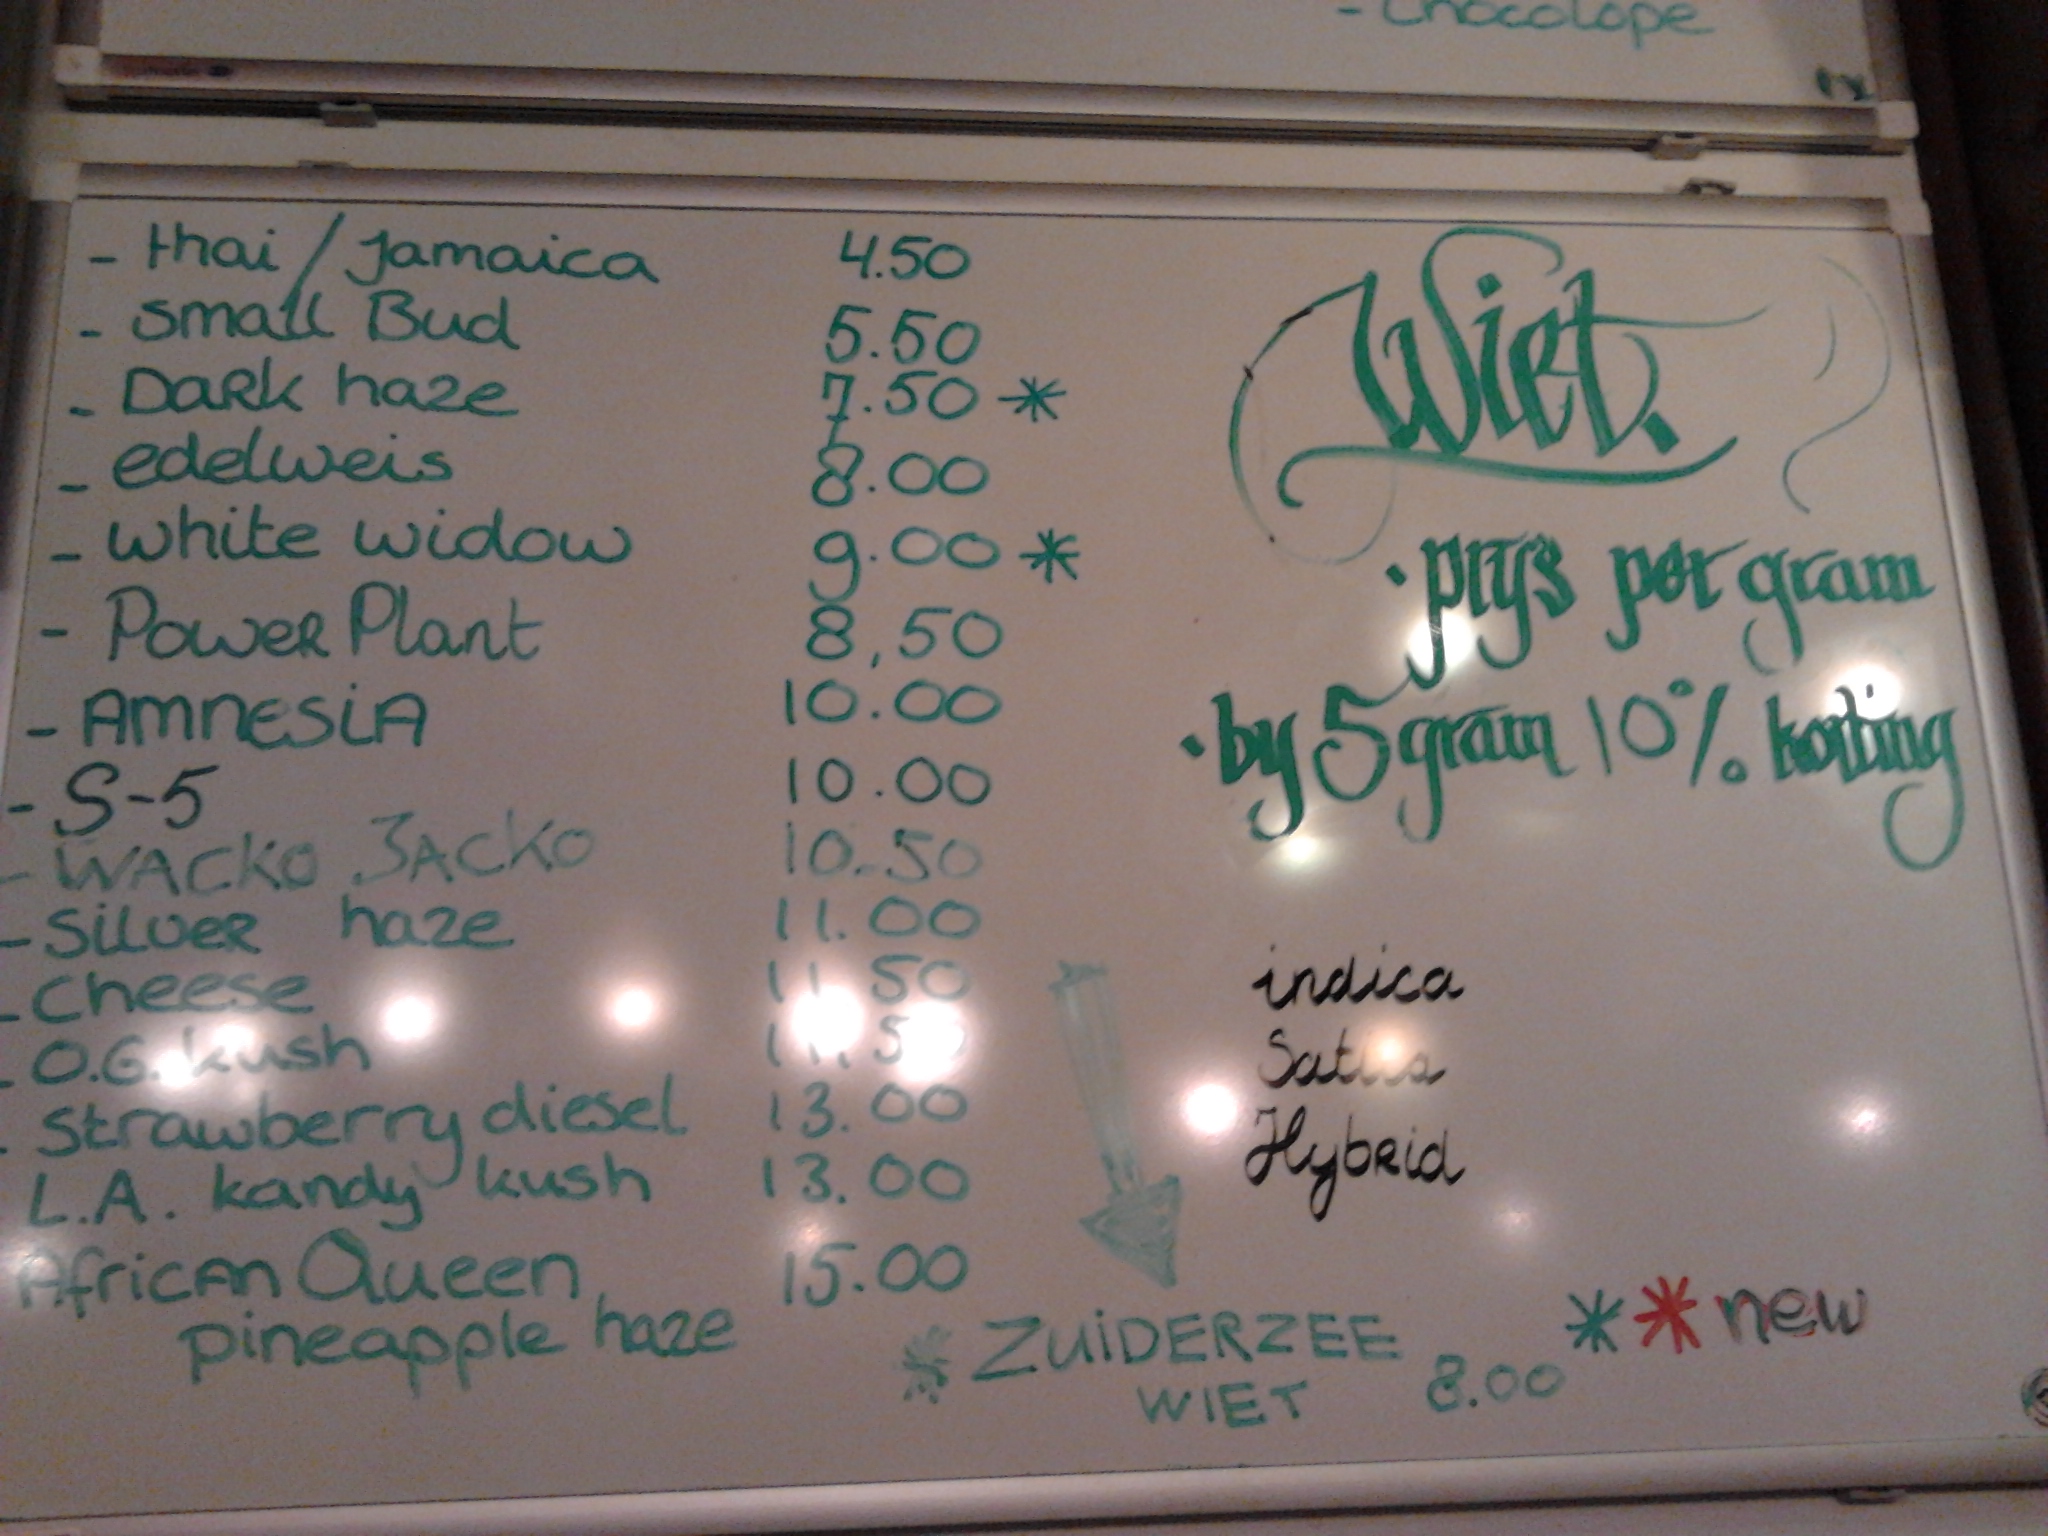 - Chocolope
- thai / Jamaica 4.50
- small Bud 5.50
- Dark haze 7.50 *
- edelweis 8.00
- white widow 9.00 *
- Power Plant 8,50
- AMNESiA 10.00
- S-5 10.00
- WACKO JACKO 10.50
- Silver haze 11.00
- Cheese 11.50
- O.G. kush 11.50
- Strawberry diesel 13.00
L.A. kandy kush 13.00
African Queen 15.00
pineapple haze
Wiet.
· prys per gram
· by 5 gram 10% korting
indica
Sativa
Hybrid
* * new
* ZUiDERZEE
WIET 8.00